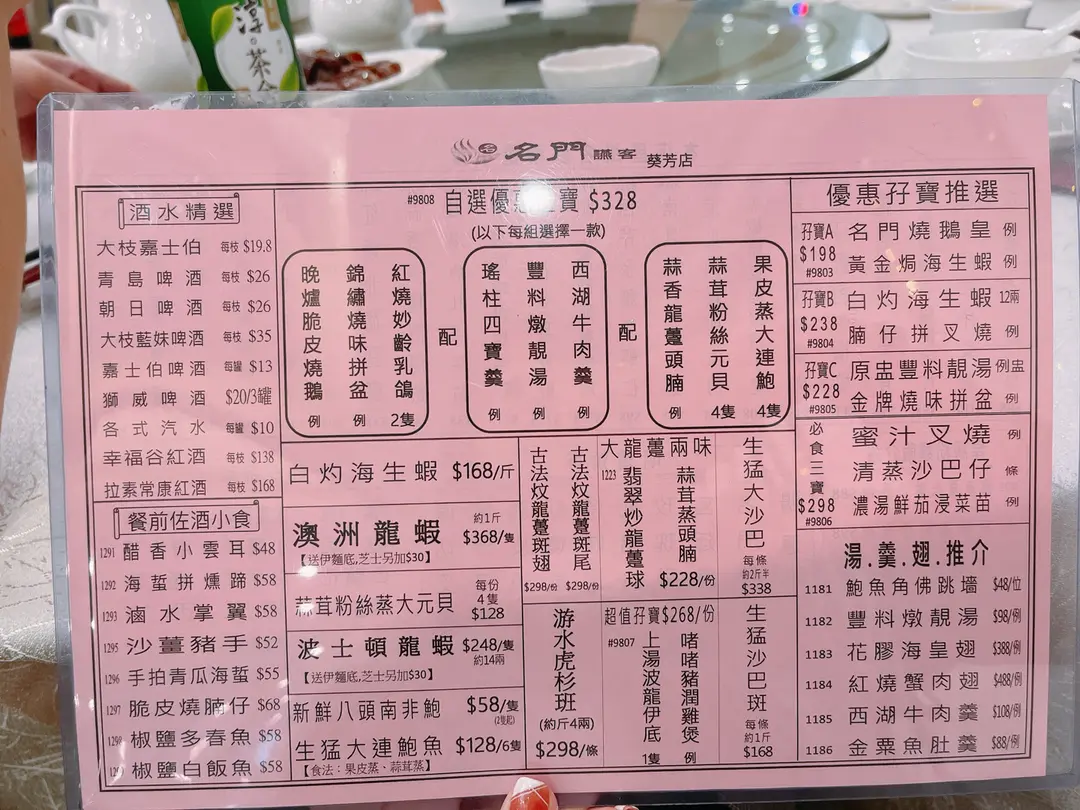 淳。茶舍
名 名門讌客 葵芳店
酒水精選
大枝嘉士伯 每枝 $19.8
青島啤酒 每枝 $26
朝日啤酒 每枝 $26
大枝藍妹啤酒 每枝 $35
嘉士伯啤酒 每罐 $13
獅威啤酒 $20/3罐
各式汽水 每罐 $10
幸福谷紅酒 每枝 $138
拉素常康紅酒 每枝 $168
餐前佐酒小食
1291 醋香小雲耳 $48
1292 海蜇拼燻蹄 $58
1293 滷水掌翼 $58
1295 沙薑豬手 $52
1296 手拍青瓜海蜇 $55
1297 脆皮燒腩仔 $68
椒鹽多春魚 $58
椒鹽白飯魚 $58
#9808 自選優惠 寶 $328
(以下每組選擇一款)
紅燒妙齡乳鴿 2隻
錦繡燒味拼盆 例
晚爐脆皮燒鵝 例
配
西湖牛肉羹 例
豐料燉靚湯 例
瑤柱四寶羹 例
配
果皮蒸大連鮑 4隻
蒜茸粉絲元貝 4隻
蒜香龍躉頭腩 例
白灼海生蝦 $168/斤
澳洲龍蝦 約1斤 $368/隻
【送伊麵底,芝士另加$30】
蒜茸粉絲蒸大元貝 每份 4隻 $128
波士頓龍蝦 $248/隻 約14兩
【送伊麵底,芝士另加$30】
新鮮八頭南非鮑 $58/隻
(2隻起)
生猛大連鮑魚 $128/6隻
【食法：果皮蒸、蒜茸蒸】
古法炆龍躉斑尾 $298/份
古法炆龍躉斑翅 $298/份
大龍躉兩味
蒜茸蒸頭腩
1223 翡翠炒龍躉球
$228/份
生猛大沙巴 每條 約2斤半 $338
游水虎杉斑 (約斤4兩) $298/條
超值孖寶$268/份
#9807
啫啫豬潤雞煲 例
上湯波龍伊底 1隻
生猛沙巴斑 每條 約1斤 $168
優惠孖寶推選
孖寶A $198 #9803
名門燒鵝皇 例
黃金焗海生蝦 例
孖寶B $238 #9804
白灼海生蝦 12兩
腩仔拼叉燒 例
孖寶C $228 #9805
原盅豐料靚湯 例盅
金牌燒味拼盆 例
必食三寶 $298 #9806
蜜汁叉燒 例
清蒸沙巴仔 條
濃湯鮮茄浸菜苗 例
湯.羹.翅.推介
1181 鮑魚角佛跳墻 $48/位
1182 豐料燉靚湯 $98/例
1183 花膠海皇翅 $388/例
1184 紅燒蟹肉翅 $488/例
1185 西湖牛肉羹 $108/例
1186 金粟魚肚羹 $88/例